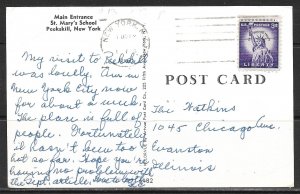 Main Entrance
St. Mary's School
Peekskill, New York
My visit to Peekskill
was lovely. Am in
New York City now
for about a week.
The place is full of
people. Fortunately
it hasn't been too
hot so far. Hope you're
having no problem with
the Sept. article.
NEW YORK, N.Y.
LIBERTY
POST CARD
The Watkins
1045 Chicago Ave.
Evanston
Illinois